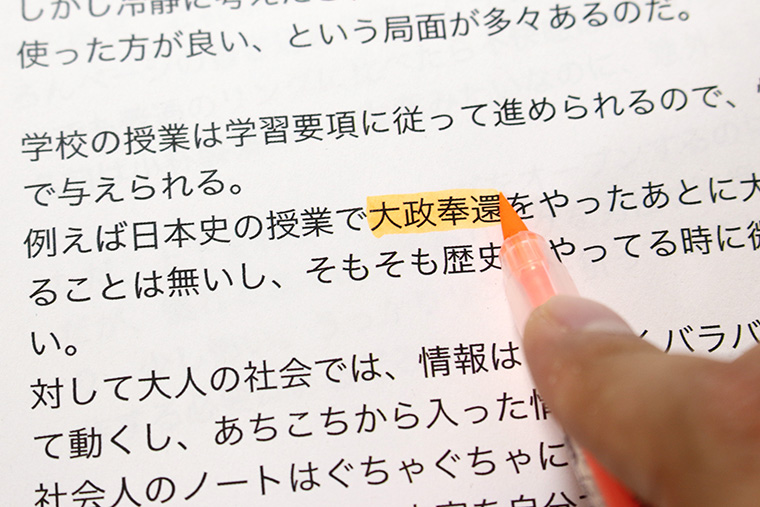 しかし冷静に考えた
使った方が良い、という局面が多々あるのだ。
学校の授業は学習要項に従って進められるので、
で与えられる。
例えば日本史の授業で大政奉還をやったあとに大
ることは無いし、そもそも歴史 やってる時に微
い。
対して大人の社会では、情報は くバラバ
て動くし、あちこちから入った情
社会人のノートはぐちゃぐちゃに